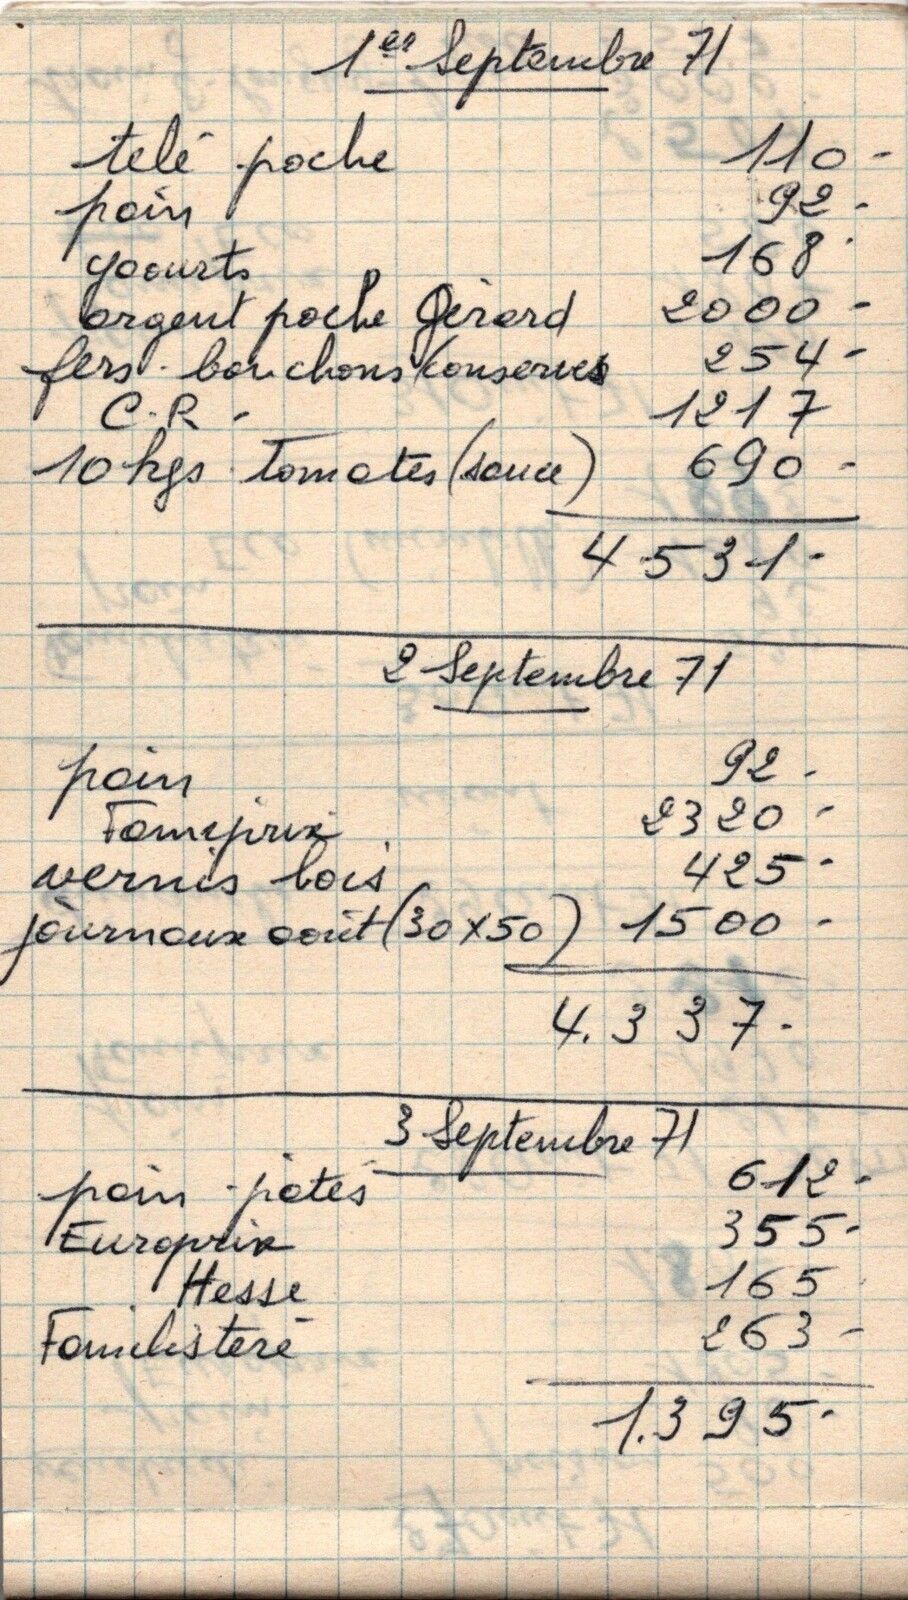 1er Septembre 71
telé poche 110-
pain 92-
yaourts 168-
argent poche Gérard 2000-
fers. bouchons/conserves 254-
C.R. 1217
10 kgs Tomates (sauce) 690-
4531-
2 Septembre 71
pain 92-
Famiprix 2320-
vernis bois 425-
journaux août (30x50) 1500-
4.337-
3 Septembre 71
pain - patés 612-
Europrix 355-
Hesse 165
Familisteré 263-
1.395-